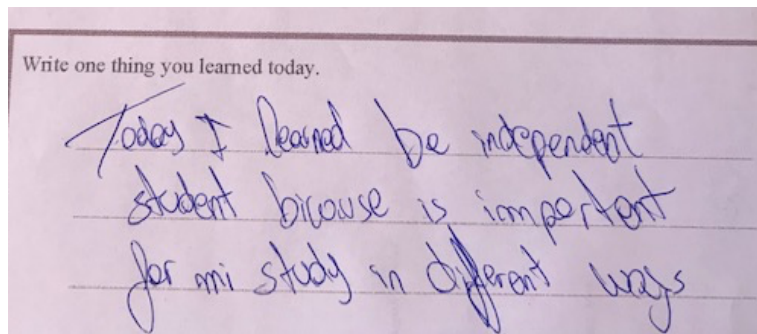 Write one thing you learned today.
Today I learned be independent
student bicouse is important
for mi study in different ways